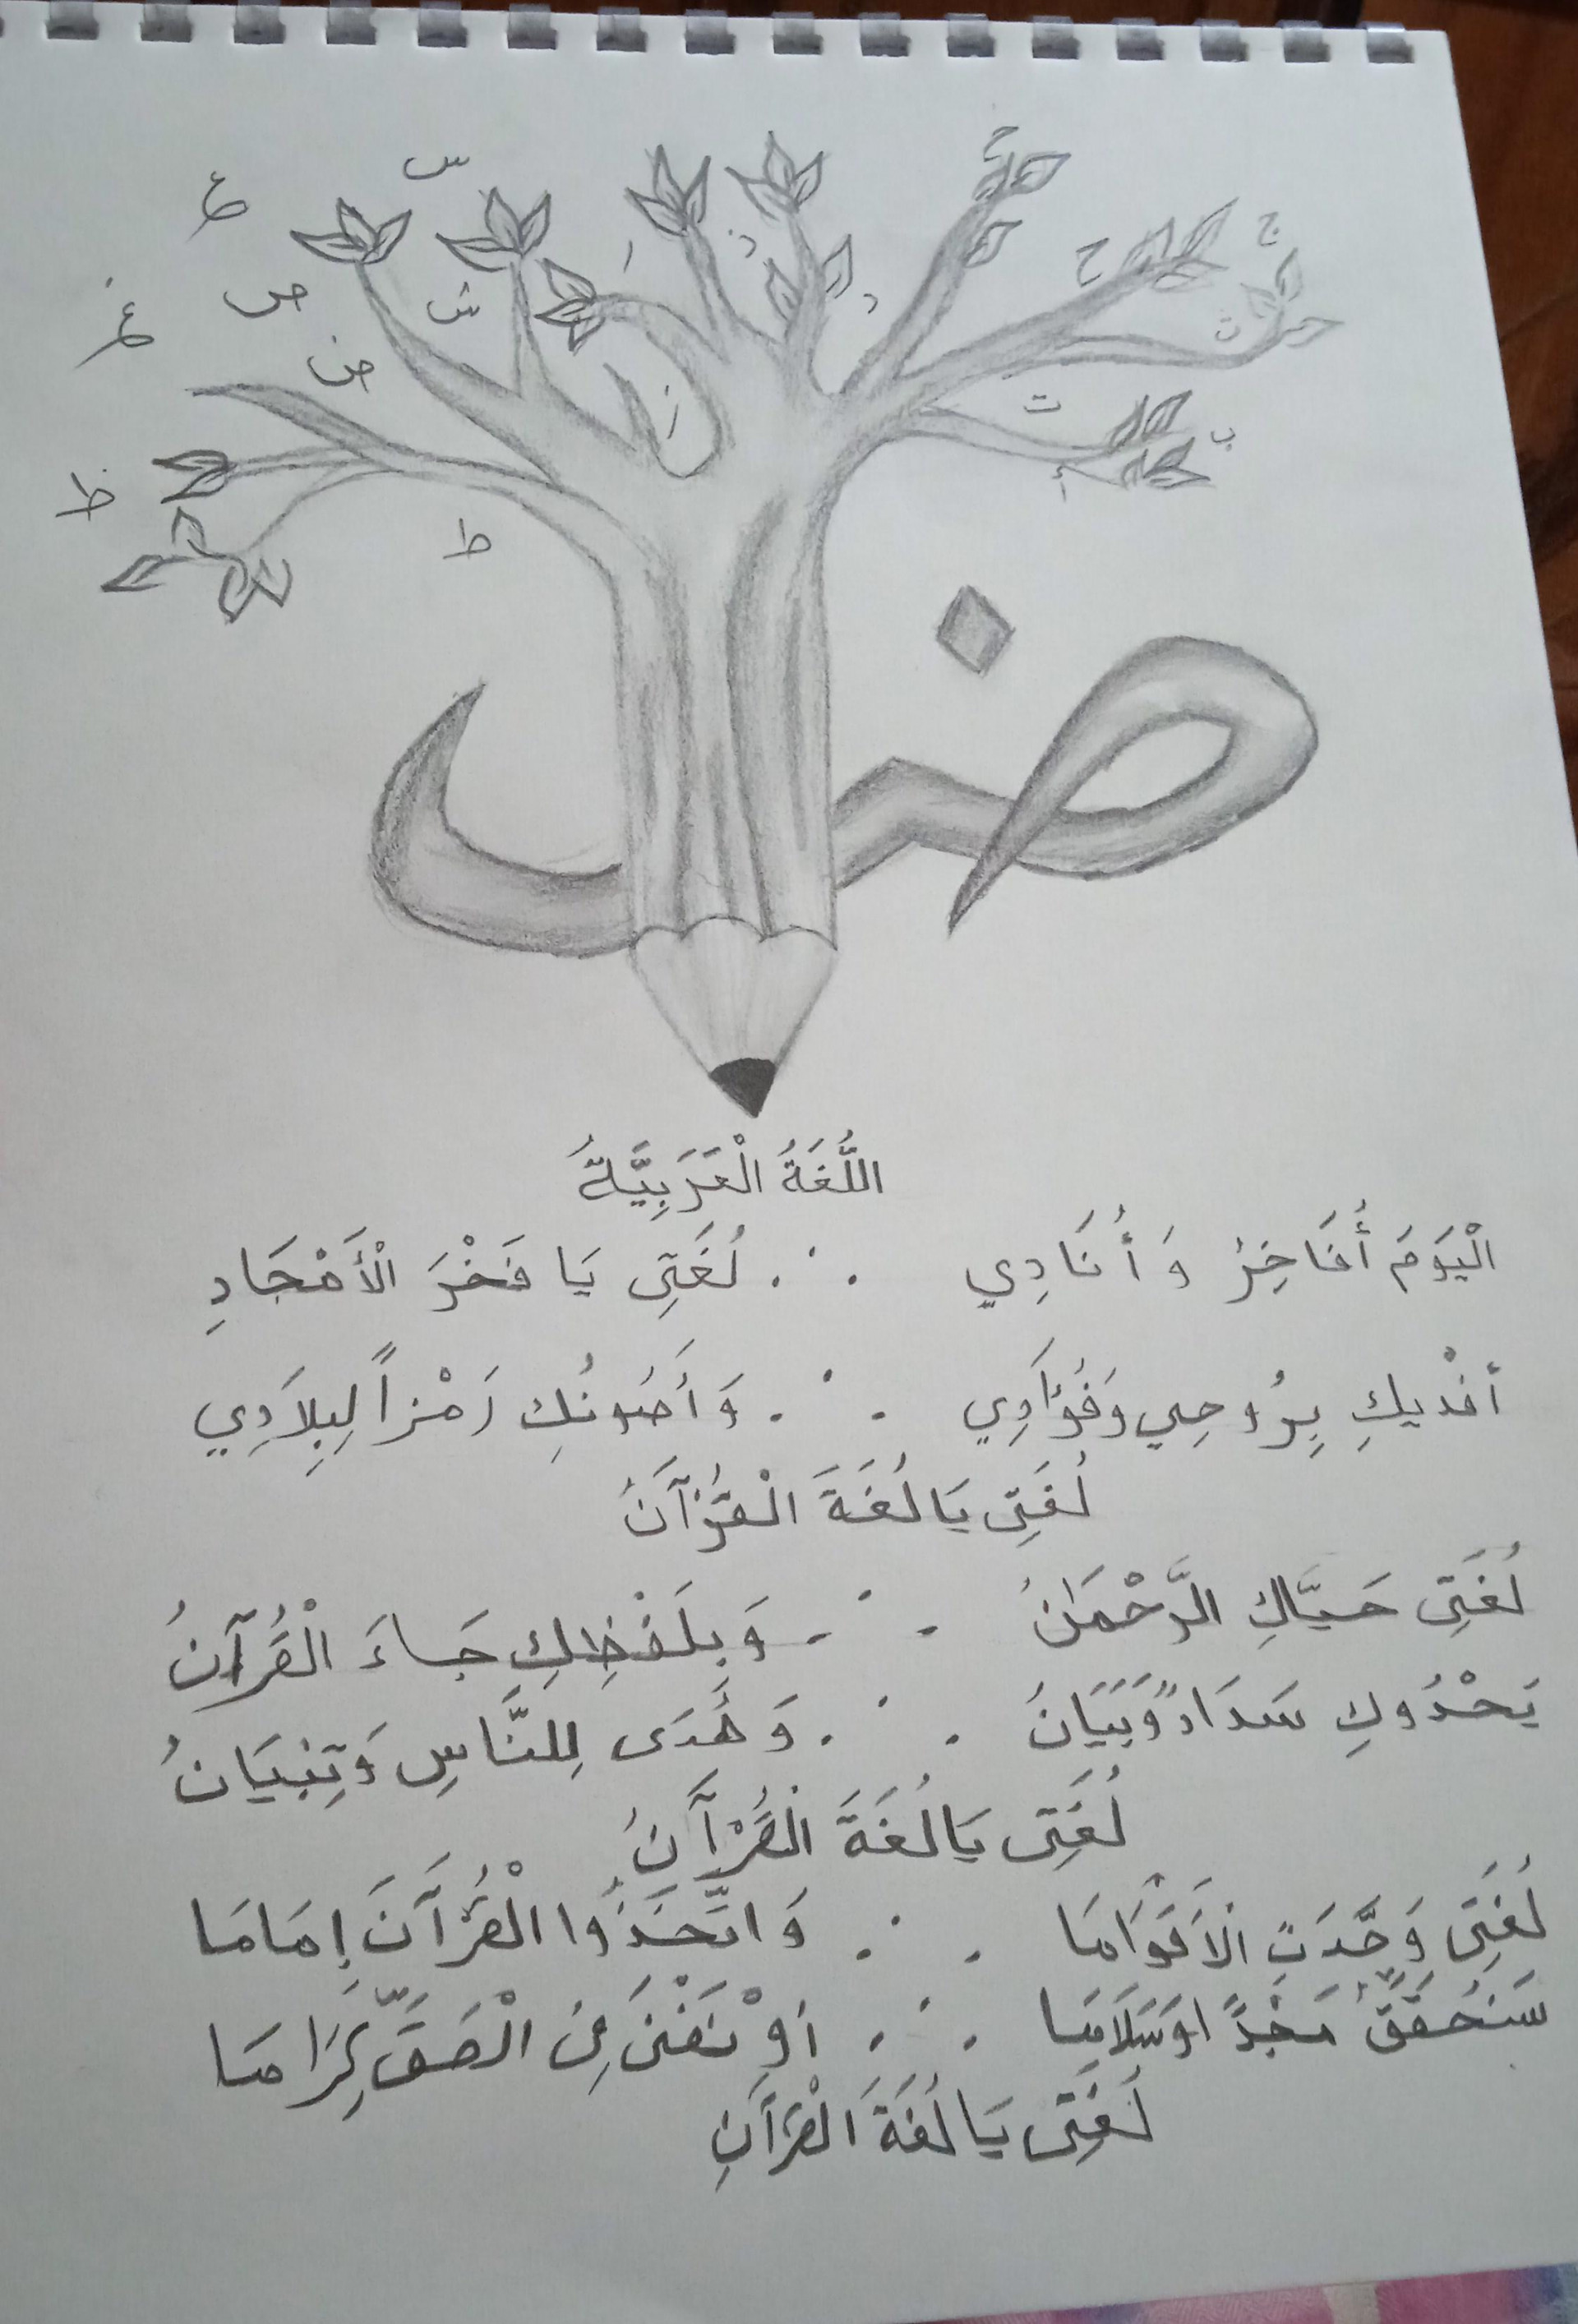 س
ع
ح
ج
ح
ر
ذ
ص
ش
غ
د
ث
ض
ز
ت
ب
أ
ظ
ط
ض
اللُّغَةُ الْعَرَبِيَّةُ
الْيَوَمَ أُفَاخِرُ وَ أُنَادِي ∴ لُغَتِى يَا فَخْرَ الْأَمْجَادِ
أفْدِيكِ بِرُوحِي وَفُؤَادِي ∴ وَأَصُونُكِ رَمْزاً لِبِلاَدِي
لُغَتِى يَا لُغَةَ الْقُرْآنُ
لُغَتِى حَيَّاكِ الرَّحْمَانُ ∴ وَبِلَفْظِكِ جَاءَ الْقُرآنُ
يَحْدُوكِ سَدَادًوَبَيَانُ ∴ وَهُدَى لِلنَّاسِ وَتِبْيَانُ
لُغَتِى يَا لُغَةَ الْقُرْآنُ
لُغَتِى وَحَّدَتِ الْأَقْوَامَا ∴ وَاتَّخَذُوا الْقُرْآنَ إِمَامَا
سَنُحَقِّقُ مَجْدًا وَسَلَامَا ∴ أوْ نَفْنَى فِى الْحَقِّ كِرَامَا
لُغَتِى يَا لُغَةَ الْقُرْآنِ